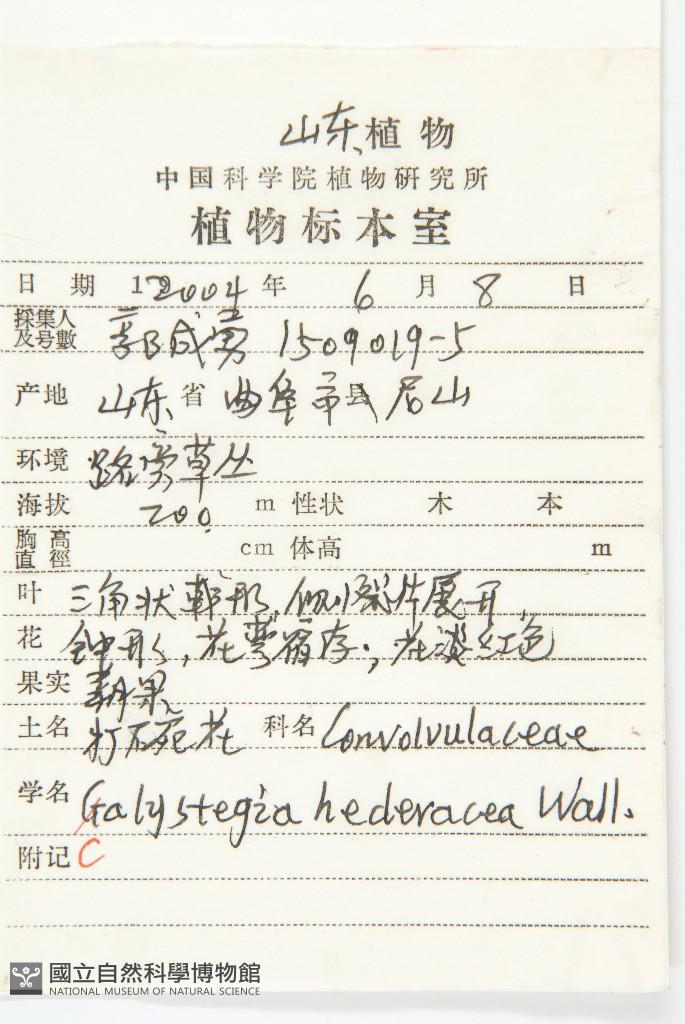 山东植物
中国科学院植物研究所
植物标本室
日期 19 2004 年 6 月 8 日
採集人及号數 郭成勇 1509019-5
产地 山东 省 曲阜市 县 尼山
环境 路旁草丛
海拔 200 m 性状 木 本
胸高直徑 cm 体高 m
叶 三角状戟形,侧裂片展开,
花 钟形,花萼宿存;花淡红色
果实 蒴果
土名 打不死花 科名 Convolvulaceae
学名 Galystegia hederacea Wall.
附记 C
國立自然科學博物館
NATIONAL MUSEUM OF NATURAL SCIENCE